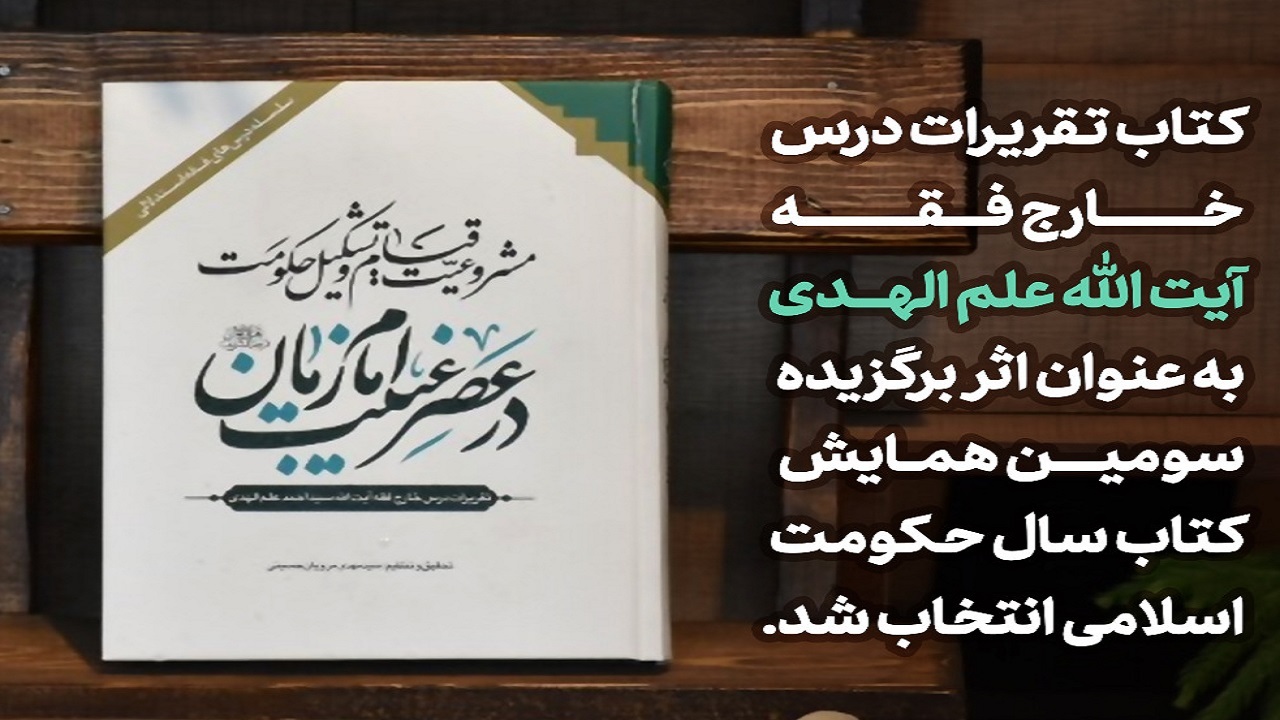 کتاب تقریرات درس
خارج فقه
آیت الله علم الهدی
به عنوان اثر برگزیده
سومین همایش
کتاب سال حکومت
اسلامی انتخاب شد.
سلسله درس‌های فقه استدلالی
مشروعیت قیام و تشکیل حکومت
در عصر غیبت امام زمان
تقریرات درس خارج فقه آیت الله سید احمد علم الهدی
تحقیق و تنظیم: سید مهدی مرویان حسینی